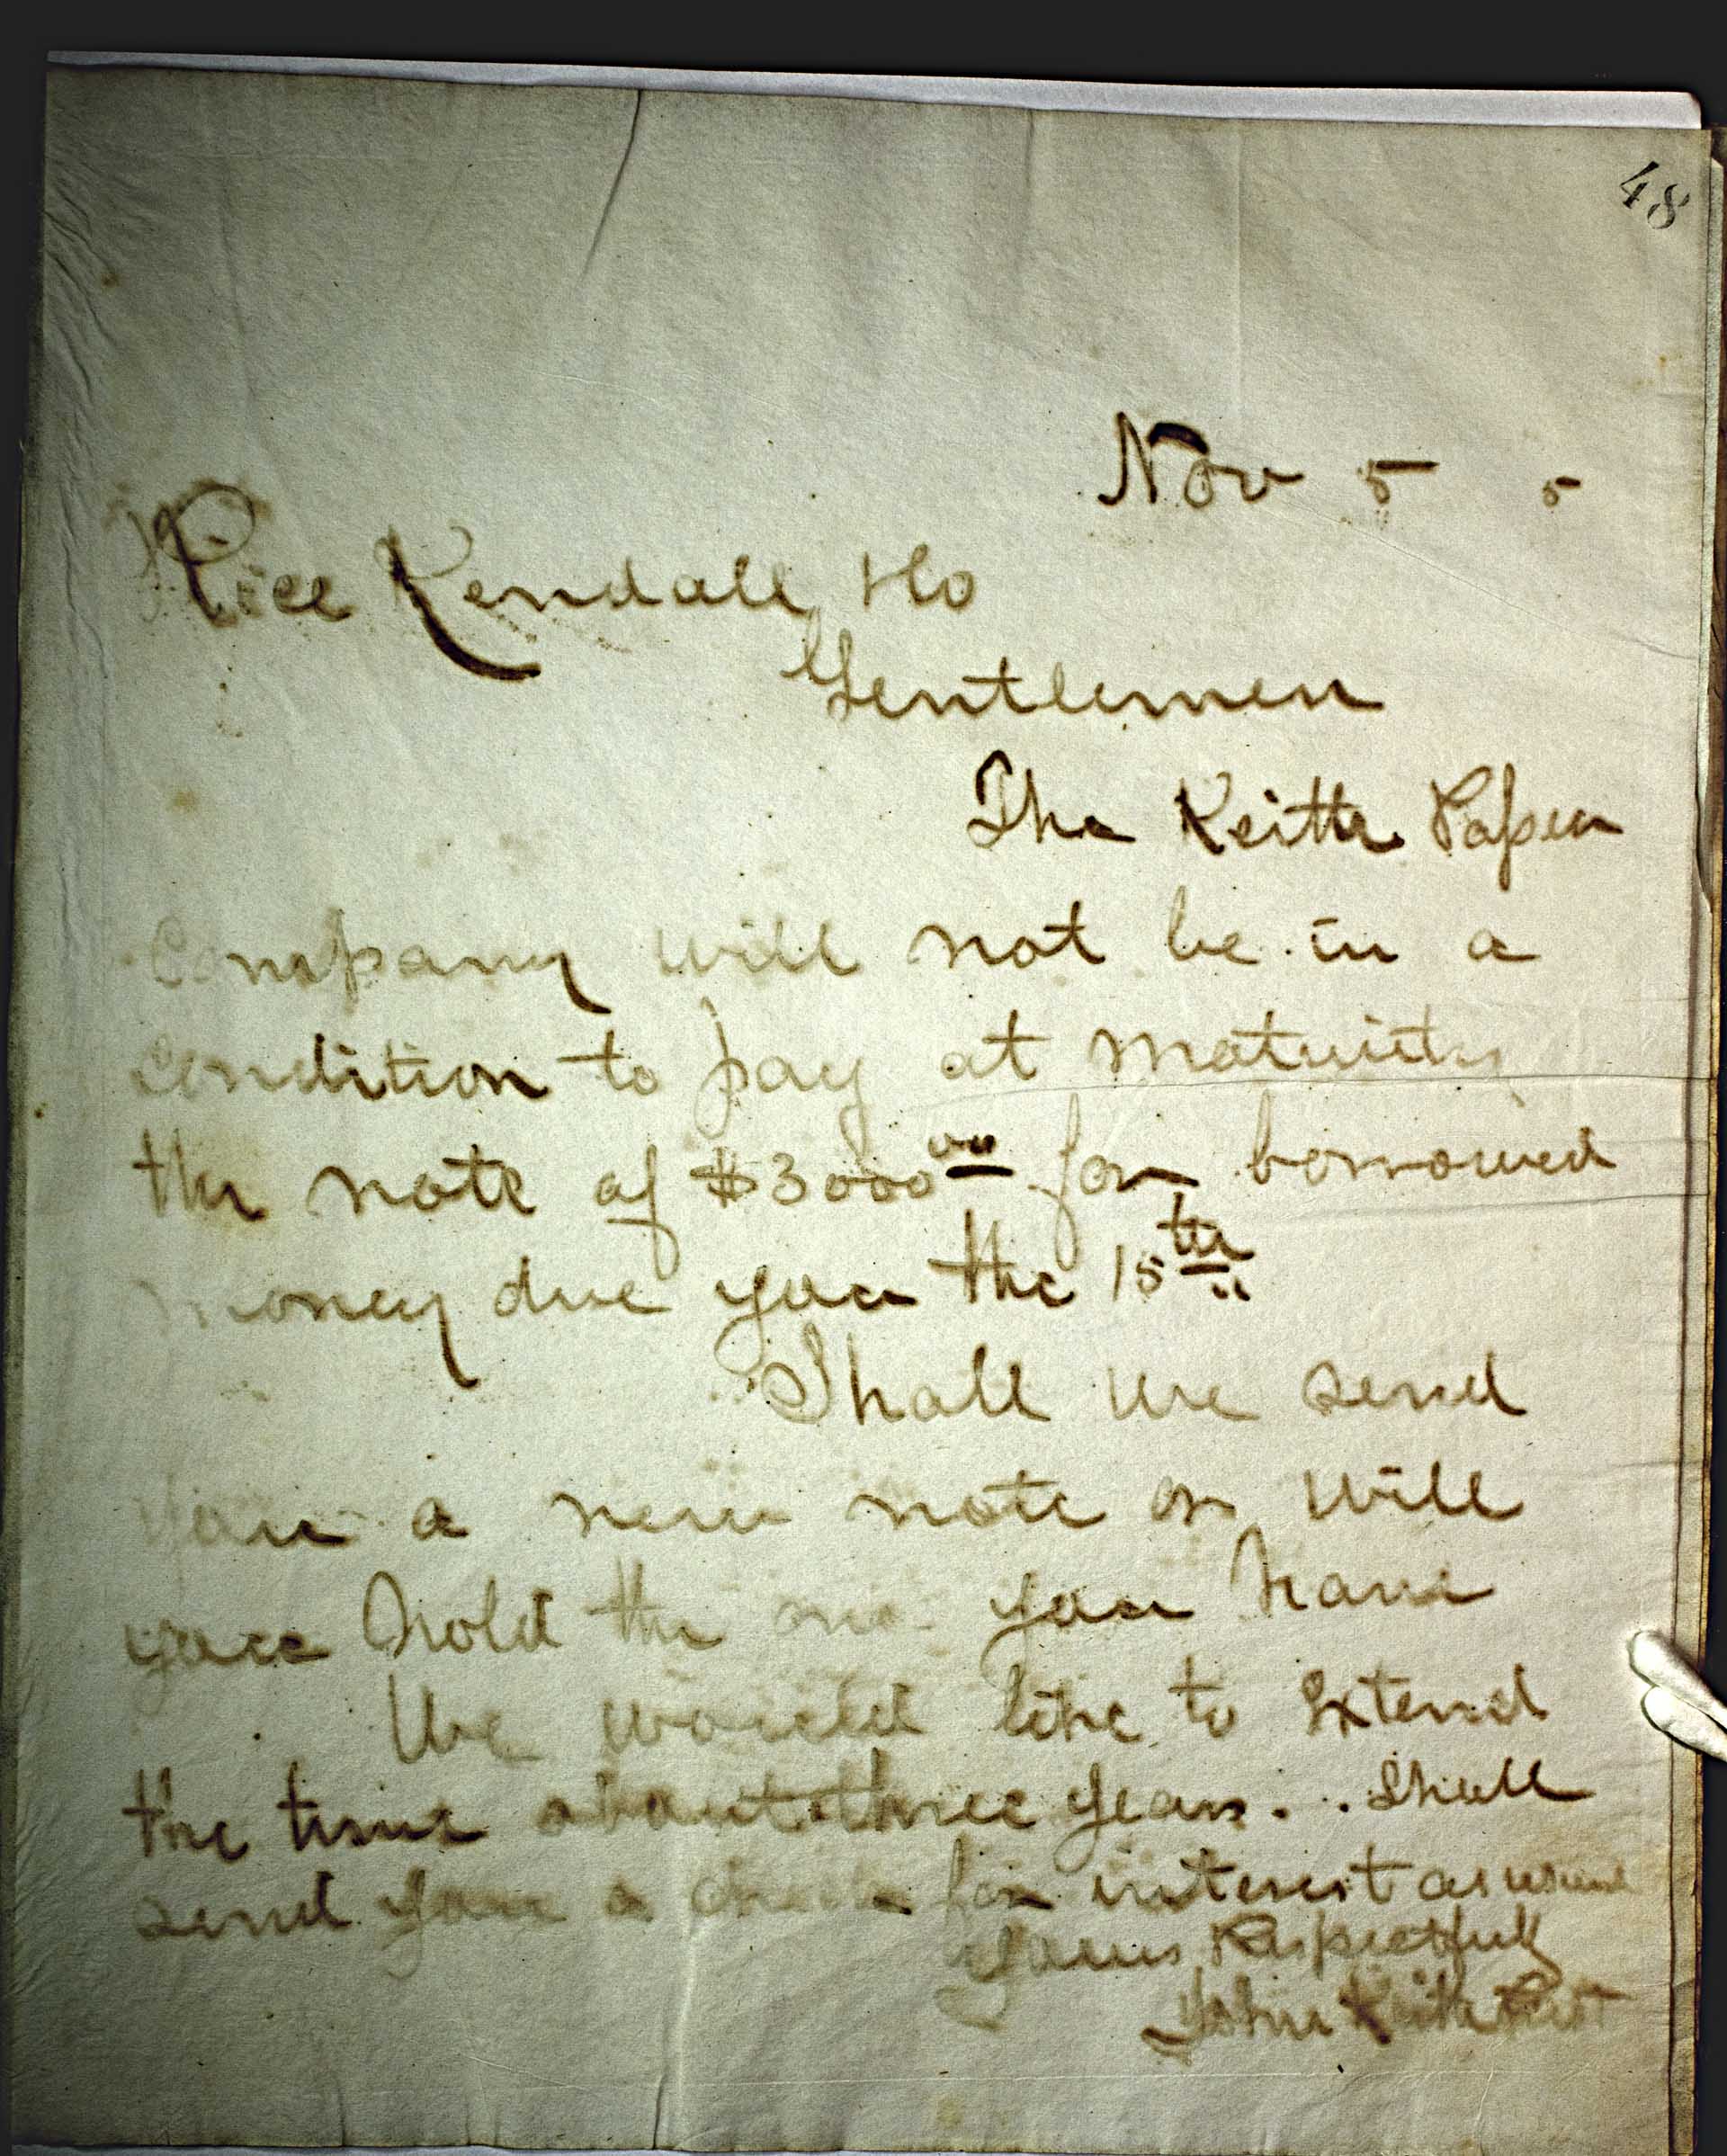 48
Nov 5 5
Rice Kendall & Co
Gentlemen
The Keith Paper
Company will not be in a
condition to pay at maturity
the note of $3000 00 for borrowed
money due you the 15th
Shall we send
you a new note or will
you hold the one you have
We would like to extend
the time about three years. Shall
send you a check for interest as usual
Yours Respectfully
John Keith Prest